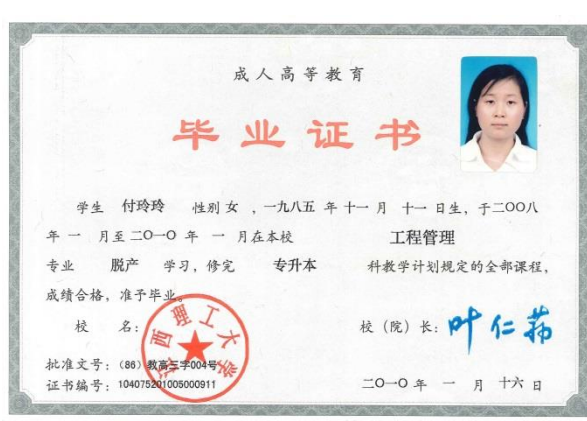 成人高等教育
毕业证书
学生 付玲玲 性别 女 ，一九八五 年 十一 月 十一 日生，于二〇〇八
年 一 月至 二〇一〇 年 一 月在本校 工程管理
专业 脱产 学习，修完 专升本 科教学计划规定的全部课程，
成绩合格，准予毕业。
校 名： 江西理工大学
校（院）长：叶仁荪
批准文号：（86）教高三字004号
证书编号：104075201005000911
二〇一〇 年 一 月 十六 日